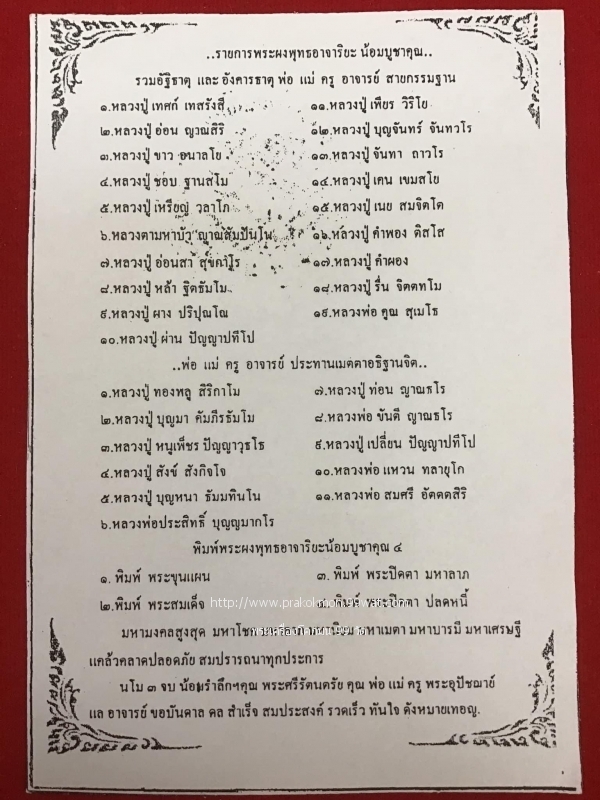 ..รายการพระผงพุทธอาจาริยะ น้อมบูชาคุณ..
รวมอัฐิธาตุ และ อังคารธาตุ พ่อ แม่ ครู อาจารย์ สายกรรมฐาน
๑.หลวงปู่ เทศก์ เทสรังสี
๒.หลวงปู่ อ่อน ญาณสิริ
๓.หลวงปู่ ขาว อนาลโย
๔.หลวงปู่ ชอบ ฐานสโม
๕.หลวงปู่ เหรียญ วลาโภ
๖.หลวงตามหาบัว ญาณสัมปันโน
๗.หลวงปู่ อ่อนสา สุขกาโร
๘.หลวงปู่ หล้า ฐิตธัมโม
๙.หลวงปู่ ผาง ปริปุณโณ
๑๐.หลวงปู่ ผ่าน ปัญญาปทีโป
๑๑.หลวงปู่ เพียร วิริโย
๑๒.หลวงปู่ บุญจันทร์ จันทวโร
๑๓.หลวงปู่ จันทา ถาวโร
๑๔.หลวงปู่ เคน เขมสโย
๑๕.หลวงปู่ เนย สมจิตโต
๑๖.หลวงปู่ คำพอง ติสโส
๑๗.หลวงปู่ คำผอง
๑๘.หลวงปู่ รื่น จิตตทโม
๑๙.หลวงพ่อ คูณ สุเมโธ
..พ่อ แม่ ครู อาจารย์ ประทานเมตตาอธิฐานจิต..
๑.หลวงปู่ ทองพลู สิริกาโม
๒.หลวงปู่ บุญมา คัมภีรธัมโม
๓.หลวงปู่ หนูเพ็ชร ปัญญาวุธโธ
๔.หลวงปู่ สังข์ สังกิจโจ
๕.หลวงปู่ บุญหนา ธัมมทินโน
๖.หลวงพ่อประสิทธิ์ บุญญมากโร
๗.หลวงปู่ ท่อน ญาณธโร
๘.หลวงพ่อ ขันตี ญาณธโร
๙.หลวงปู่ เปลี่ยน ปัญญาปทีโป
๑๐.หลวงพ่อ แหวน ทลายุโก
๑๑.หลวงพ่อ สมศรี อัตตสิริ
พิมพ์พระผงพุทธอาจาริยะน้อมบูชาคุณ ๔
๑. พิมพ์ พระขุนแผน
๒.พิมพ์ พระสมเด็จ
๓. พิมพ์ พระปิดตา มหาลาภ
พิมพ์ พระปิดตา ปลดหนี้
มหามงคลสูงสุด มหาโชค มหาเมตตา มหาบารมี มหาเศรษฐี
แคล้วคลาดปลอดภัย สมปรารถนาทุกประการ
นโม ๓ จบ น้อมรำลึกฯคุณ พระศรีรัตนตรัย คุณ พ่อ แม่ ครู พระอุปัชฌาย์
แล อาจารย์ ขอบันดาล ดล สำเร็จ สมประสงค์ รวดเร็ว ทันใจ ดังหมายเทอญ.